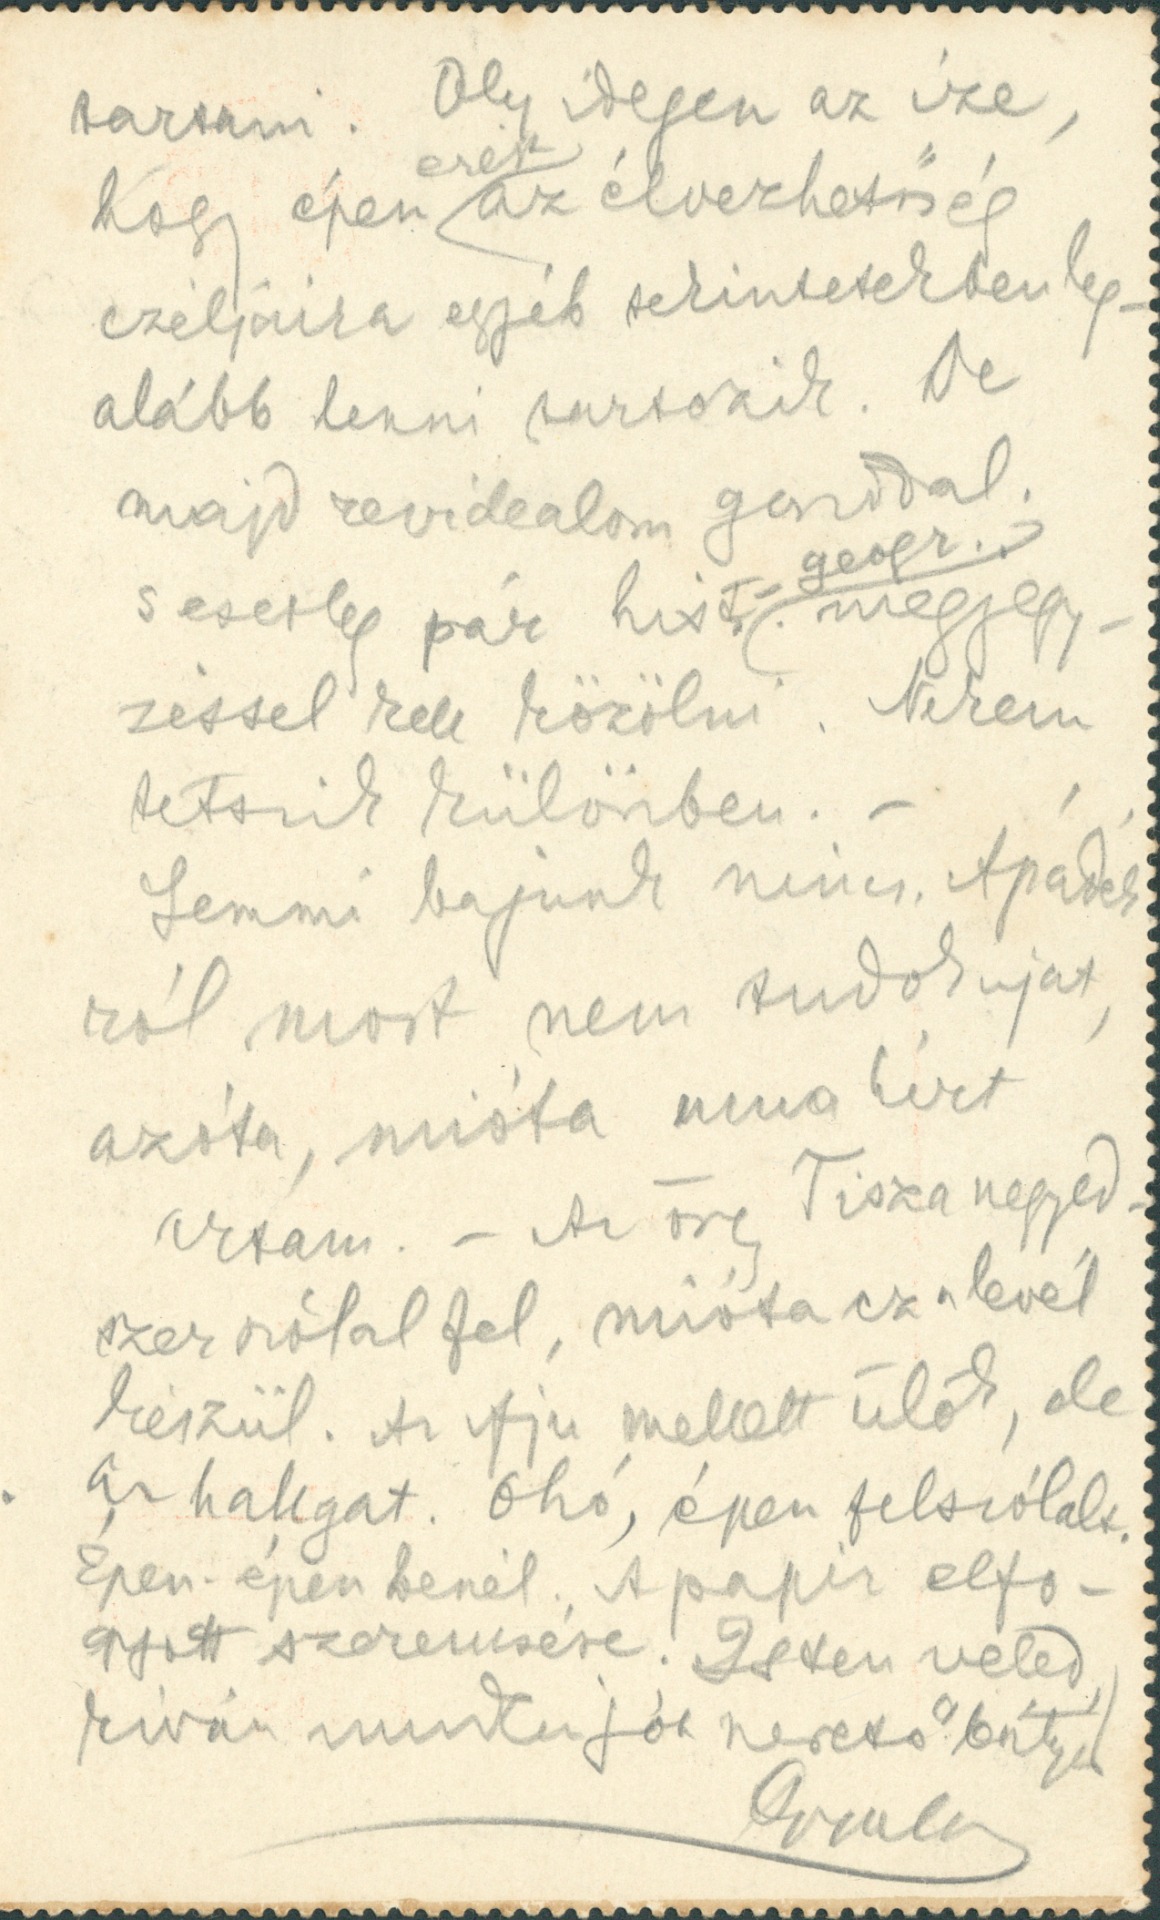 tartani. Oly idegen az íze,
hogy épen ezért az élvezhetőség
czéljaira egyéb tekintetekben leg-
alább lenni tartozik. De
majd revidealom gonddal.
s esetleg pár hist.- geogr. megjegy-
zéssel kell közölni. Nekem
tetszik különben. –
Semmi bajunk nincs. Apádék
ról most nem tudok ujat,
azóta, mióta hírt
irtam. – Az öreg Tisza negyed-
szer szólal fel, mióta ez a levél
készül. Az ifju mellett ülök, de
az hallgat. Ohó, épen felszólalt.
Épen-épen beszél. A papir elfo-
gyott szerencsére. Isten veled,
kíván minden jót szerető bátyád
Gyula